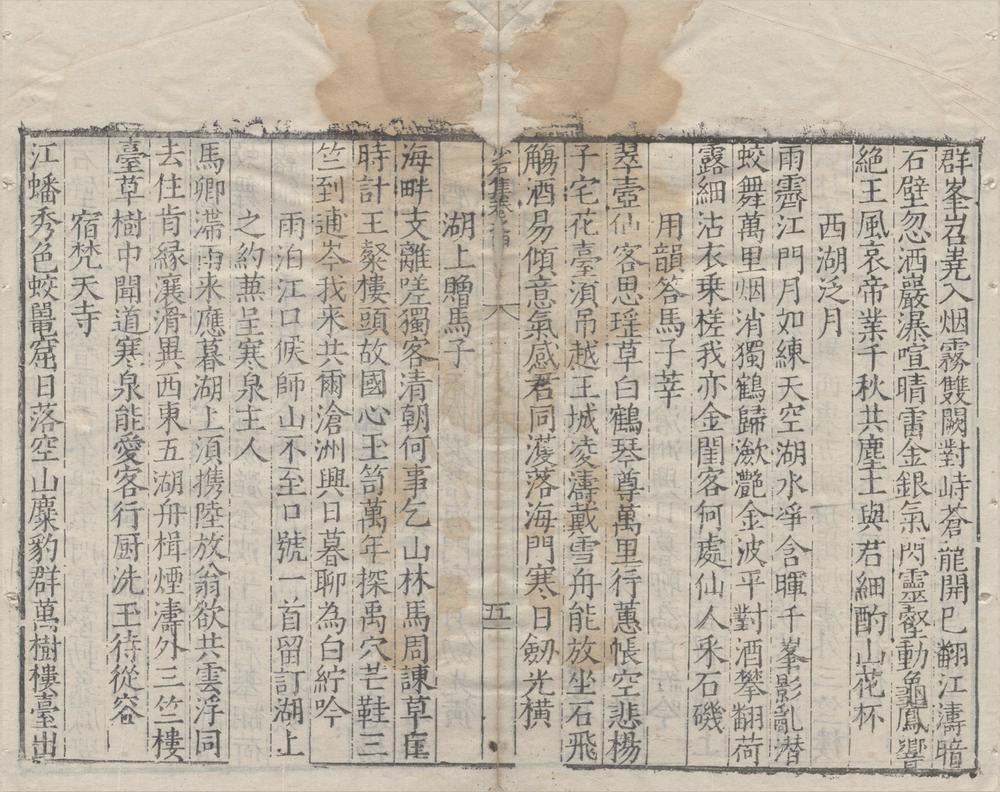 群峯岧嶤入烟霧雙闕對峙蒼龍開巳翻江濤暗
石壁忽洒巖瀑喧晴雷金銀氣閃靈壑動龜鳳響
絶王風哀帝業千秋共塵土與君細酌山花杯
西湖泛月
雨霽江門月如練天空湖水淨含暉千峯影亂潜
蛟舞萬里烟消獨鶴歸瀲灧金波平對酒攀翻荷
露細沾衣乗槎我亦金閨客何處仙人釆石磯
用韻答馬子莘
翠壺仙客思瑶草白鶴琴尊萬里行蕙帳空悲楊
子宅花臺湏吊越王城凌濤戴雪舟能放坐石飛
觴酒易傾意氣感君同濩落海門寒日劒光横
五
湖上贈馬子
海畔支離嗟獨客清朝何事乞山林馬周諌草違
時計王粲樓頭故國心玉笥萬年探禹穴芒鞋三
竺到誦岑我来共爾滄洲興日暮聊為白紵吟
雨泊江口候師山不至口號一首留訂湖上
之約蒹呈寒泉主人
馬卿滯雨来應暮湖上須携陸放翁欲共雲浮同
去住肯緣瀼滑異西東五湖舟楫煙濤外三竺樓
臺草樹中聞道寒泉能愛客行厨洗玉待從容
宿梵天寺
江蟠秀色蛟鼉窟日落空山麋豹群萬樹樓臺出